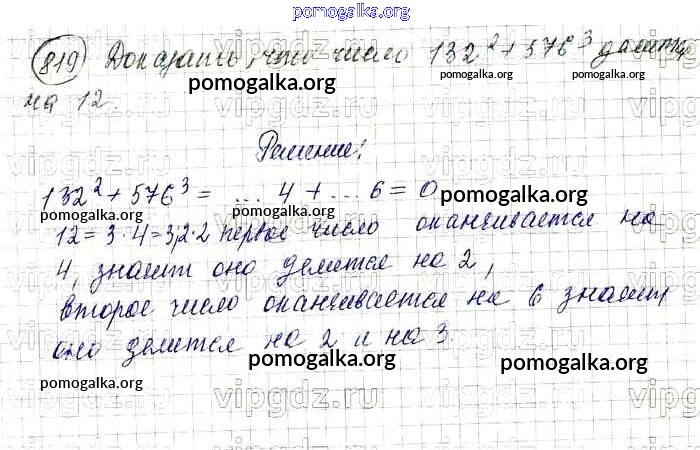 pomogalka.org
819 Доказать, что число 132² + 576³ делится
на 12.
pomogalka.org
Решение:
132² + 576³ = ... 4 + ... 6 = 0
pomogalka.org
pomogalka.org
pomogalka.org
12 = 3 · 4 = 3·2·2 первое число оканчивается на
4, значит оно делится на 2,
второе число оканчивается на 6 значит
оно делится на 2 и на 3.
pomogalka.org
pomogalka.org
pomogalka.org
vipgdz.ru